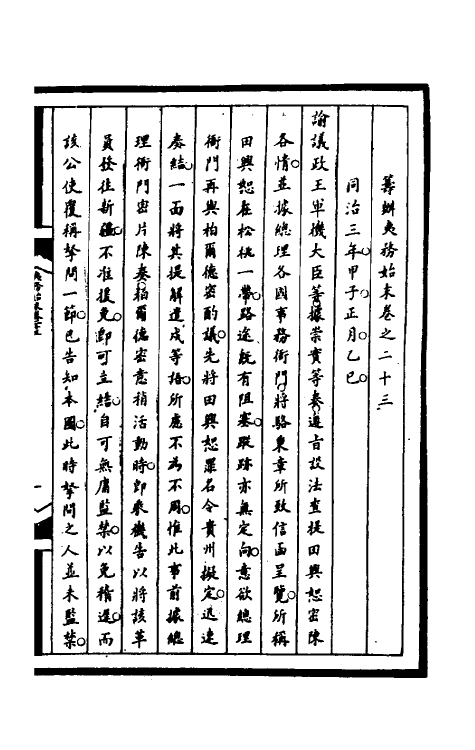 籌辦夷務始末卷之二十三
同治三年甲子正月乙巳
諭議政王軍機大臣等據崇實等奏遵旨設法查提田興恕密陳
各情並據總理各國事務衙門將駱秉章所致信函呈覽所稱
田興恕在松桃一帶路途既有阻塞蹤跡亦無定向意欲總理
衙門再與柏爾德密酌議先將田興恕罪名令貴州擬定迅速
奏結一面將其提解遣戍等語所慮不為不周惟此事前據總
理衙門密片陳奏柏爾德密意稍活動時即乘機告以將該革
員發往新疆不准援免即可立結自可無庸監禁以免稽遲而
該公使覆稱拏問一節已告知本國此時拏問之人並未監禁